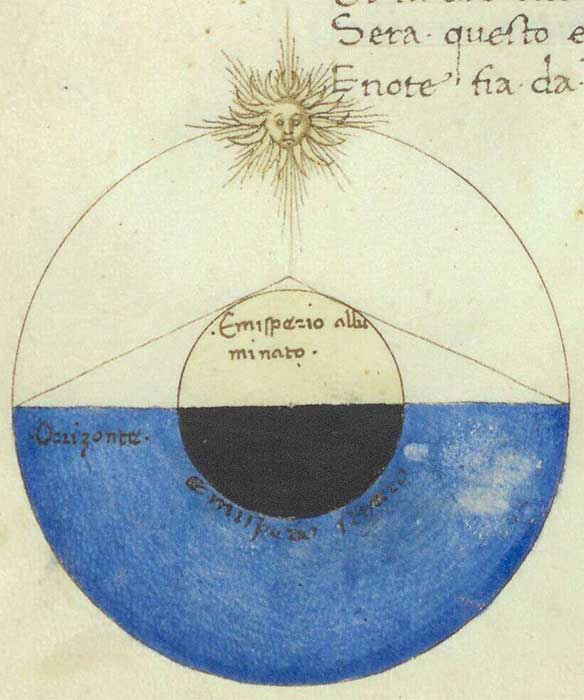 Sera· questo e
E note' fia· da·
·Emisperio allu
minato·
·Orizonte·
Emisperio